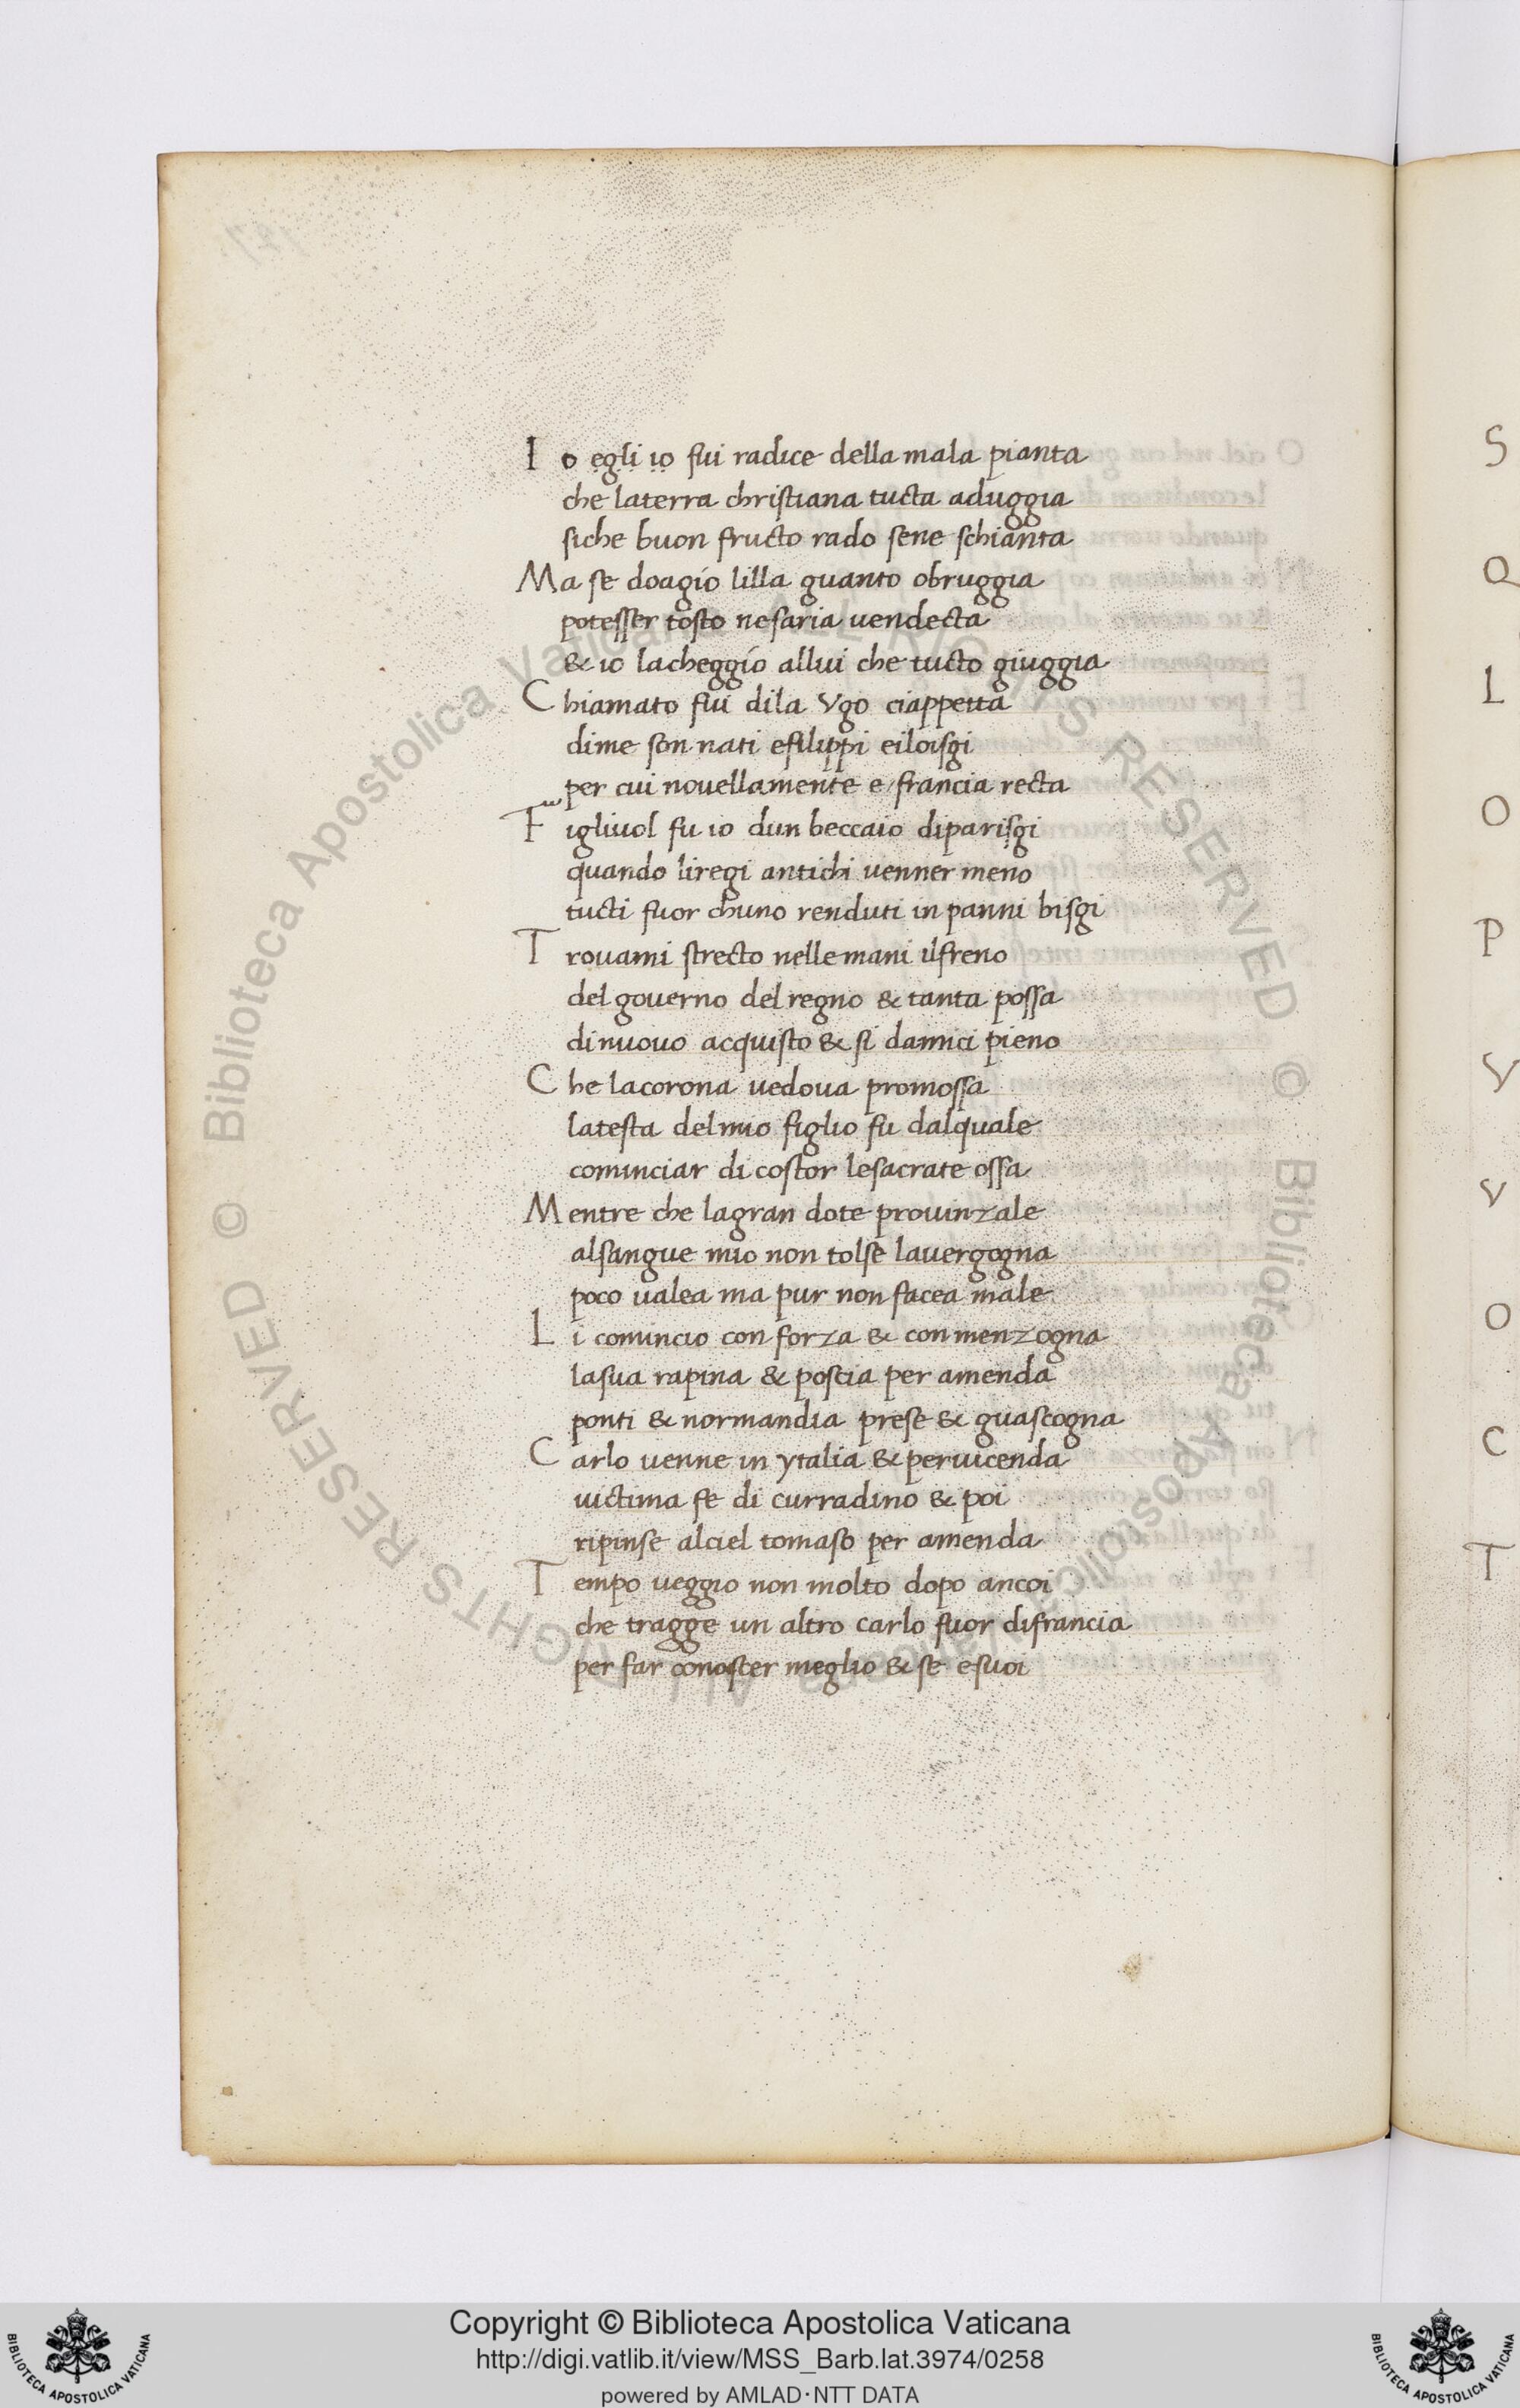 I o egli io fui radice della mala pianta
che laterra christiana tucta aduggia
siche buon fructo rado sene schianta
Ma se doagio lilla guanto obruggia
potesser tosto nesaria uendecta
& io lacheggio allui che tucto giuggia
C hiamato fui dila Vgo ciappetta
dime son nati efilippi eiloisgi
per cui nouellamente e francia recta
F igliuol fu io dun beccaio diparisgi
quando liregi antichi uenner meno
tucti fuor chuno renduti in panni bisgi
T rouami strecto nellemani ilfreno
del gouerno del regno & tanta possa
dinuouo acquisto & si damici pieno
C he lacorona uedoua promossa
latesta delmio figlio fu dalquale
cominciar di costor lesacrate ossa
M entre che lagran dote prouinzale
alsangue mio non tolse lauergogna
poco ualea ma pur non facea male
L i comincio con forza & conmenzogna
lasua rapina & poscia per amenda
ponti & normandia prese & guascogna
C arlo uenne in ytalia & peruicenda
uictima fe di curradino & poi
ripinse alciel tomaso per amenda
T empo ueggio non molto dopo ancoi
che tragge un altro carlo fuor difrancia
per far conoscer meglio & se esuoi
S
Q
L
O
P
V
V
O
C
T
Biblioteca Apostolica Vaticana ALL RIGHTS RESERVED ©
Biblioteca Apostolica Vaticana ALL RIGHTS RESERVED ©
Copyright © Biblioteca Apostolica Vaticana
http://digi.vatlib.it/view/MSS_Barb.lat.3974/0258
powered by AMLAD·NTT DATA
BIBLIOTECA APOSTOLICA VATICANA
BIBLIOTECA APOSTOLICA VATICANA